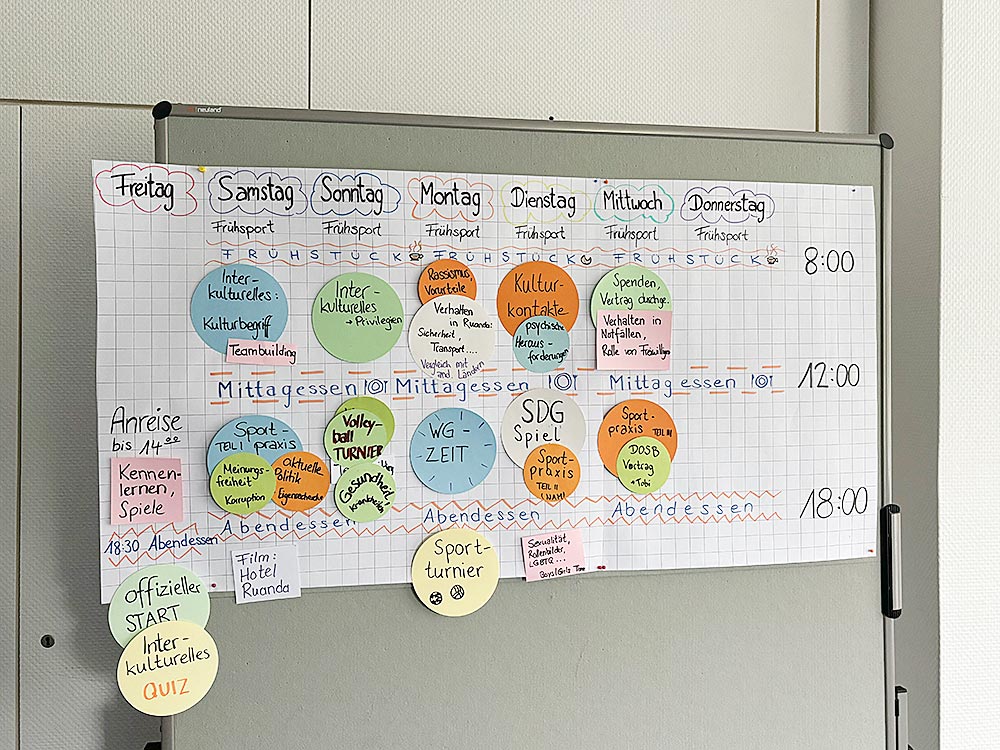 neuland
Freitag
Samstag
Sonntag
Montag
Dienstag
Mittwoch
Donnerstag
Frühsport
Frühsport
Frühsport
Frühsport
Frühsport
Frühsport
FRÜHSTÜCK
FRÜHSTÜCK
FRÜHSTÜCK
8:00
Inter-
kulturelles:
Kulturbegriff
Teambuilding
Inter-
kulturelles
→ Privilegien
Rassismus,
Vorurteile
Verhalten
in Ruanda:
Sicherheit,
Transport....
Vergleich mit
and. Ländern
Kultur-
kontakte
psychische
Heraus-
forderungen
Spenden,
Vertrag durchge.
Verhalten in
Notfällen,
Rolle von Freiwilligen
Mittagessen
Mittagessen
Mittagessen
12:00
Anreise
bis 14⁰⁰
Kennen-
lernen,
Spiele
Sport-
TEIL I praxis
Meinungs-
freiheit
Korruption
aktuelle
Politik
Volley-
ball
TURNIER
Gesundheit
WG-
ZEIT
SDG
Spiel
Sport-
praxis
TEIL II
Sport-
praxis TEIL III
DOSB
Vortrag
+ Tobi
Abendessen
Abendessen
Abendessen
18:00
18:30 Abendessen
offizieller
START
Inter-
kulturelles
QUIZ
Film:
Hotel
Ruanda
Sport-
turnier
Sexualität,
Rollenbilder,
LGBTQ...
Boys/Girls Time